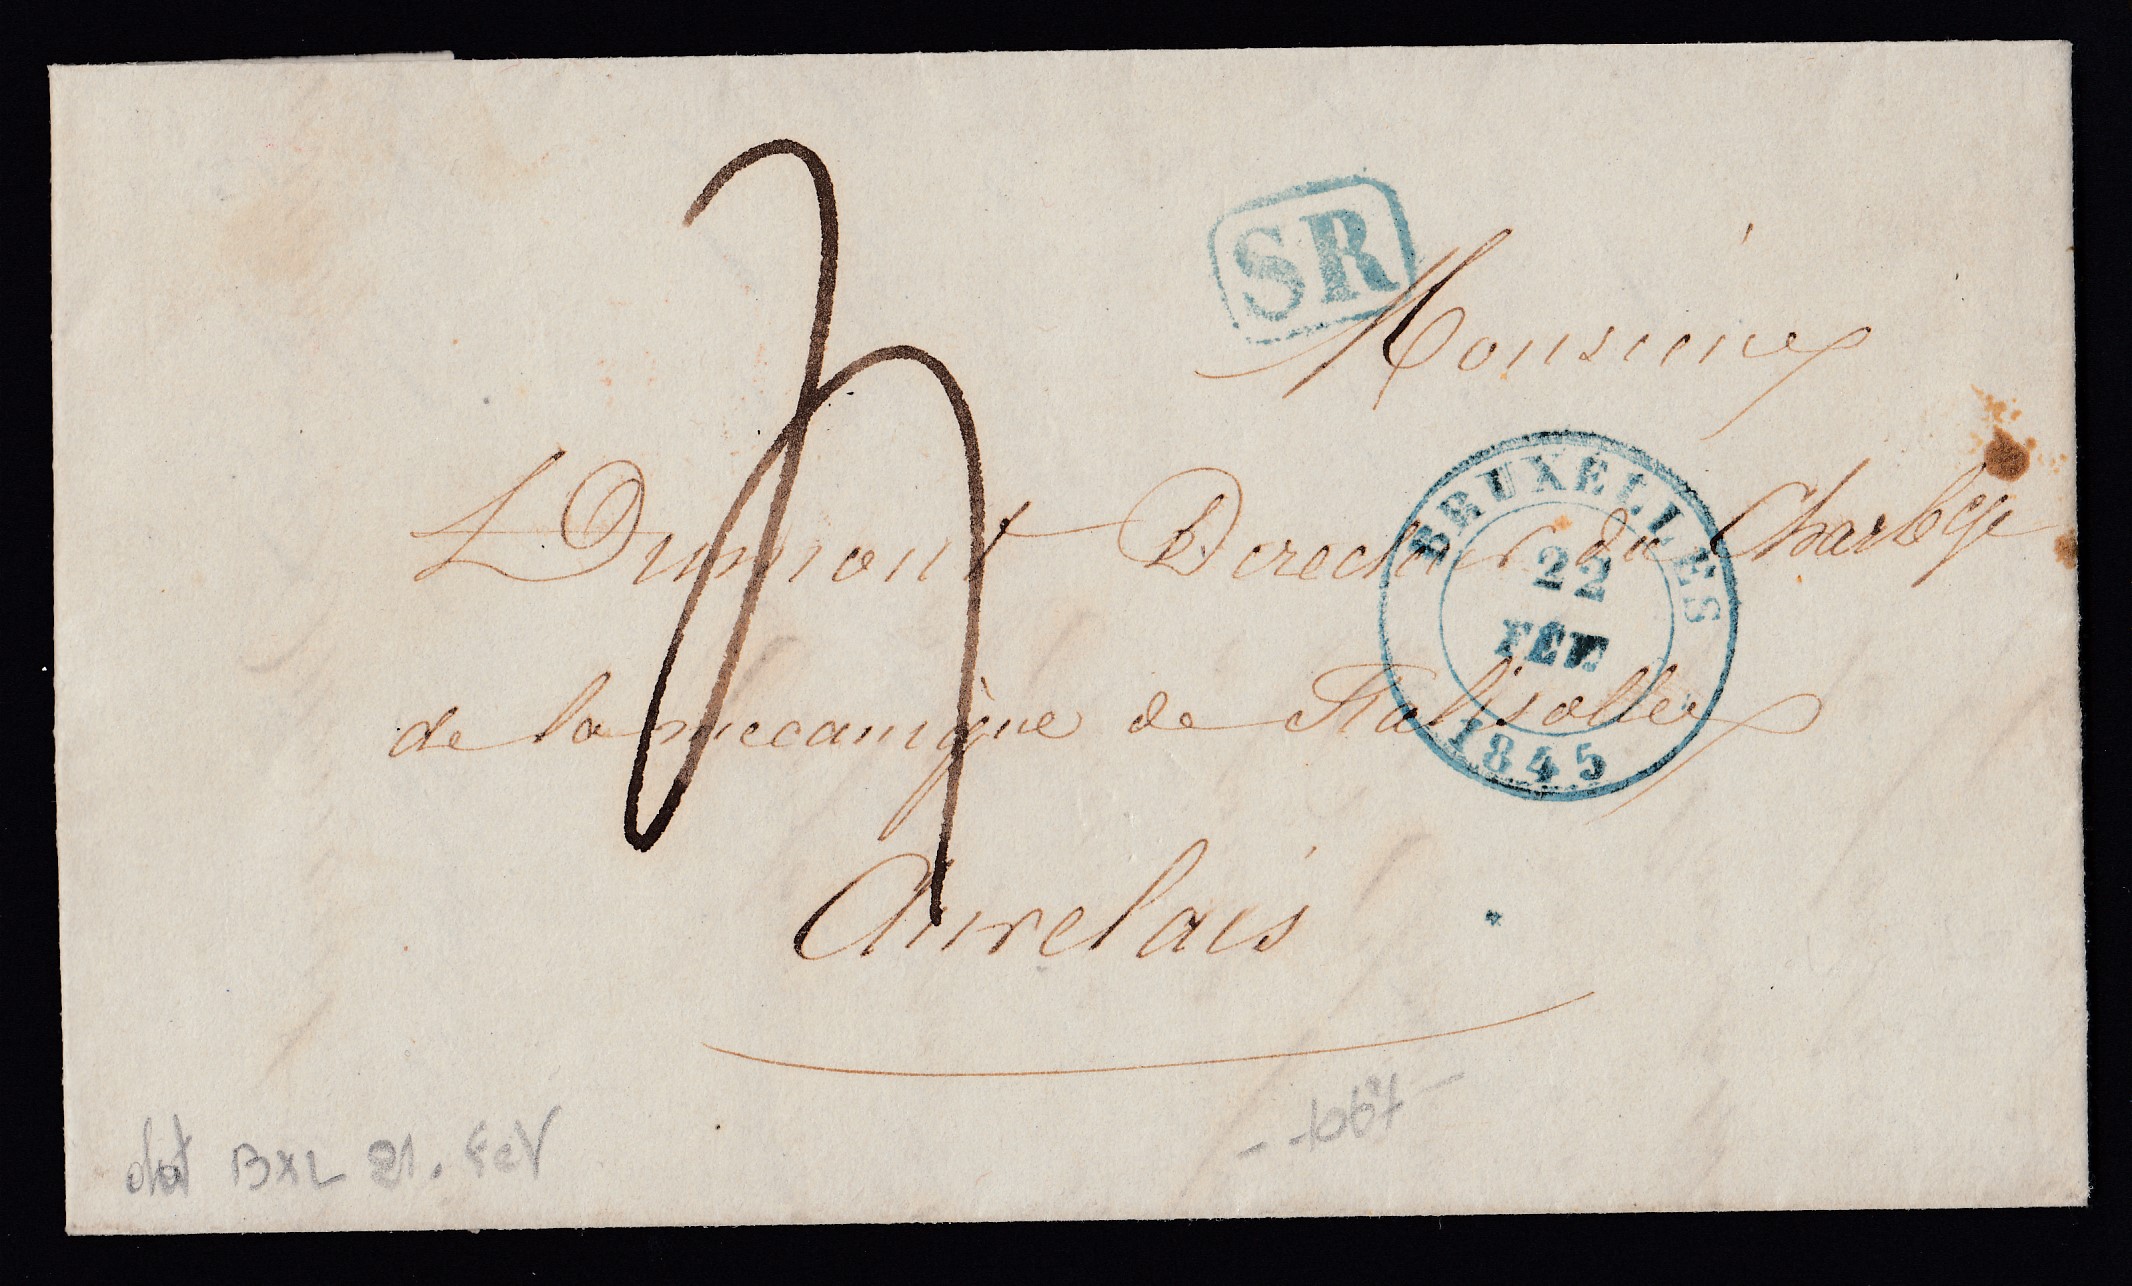 SR
Monsieur
L Dumont Directeur du Charbge
de la mecanique de Falisolle
Auvelais
BRUXELLES
22
FÉV.
1845
3
dat BXL 21. Fev